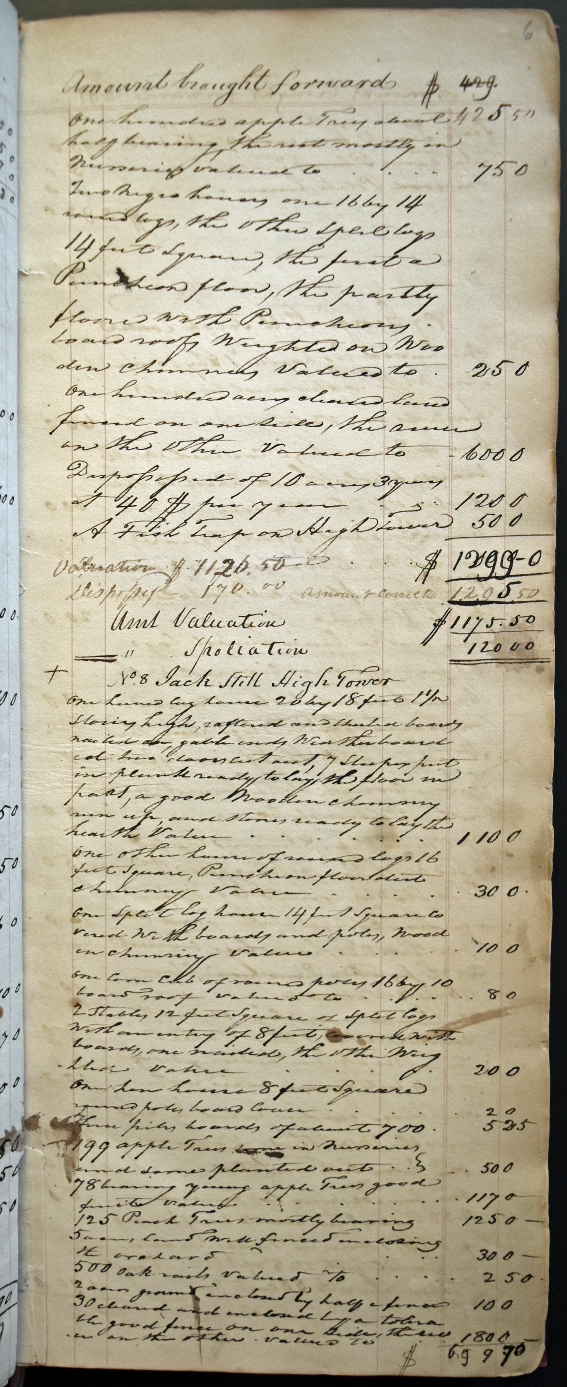 6
Amount brought forward $ 429.
One hundred apple Trees about 425 50
half bearing, the rest mostly in
Nurseries valued to 750
Two Negro houses one 16 by 14
round logs, the other split logs
14 feet square, the first a
Puncheon floor, the partly
floored with Puncheons.
board roofs Weighted on Woo
den chimneys Valued to 250
One hundred acres cleared land
fenced on one side, the river
on the other Valued to 6000
Dispossessed of 10 acres 3 years
at 40 $ per year 1200
A Fish Trap on High Tower 500
$ 1299-0
Valuation $ 1126.50
Disposses 170.00 Amount corrected 1295 50
Amt Valuation $ 1175.50
" Spoliation 12000
+ No. 8 Jack Still High Tower
One hewed log house 20 by 18 feet 1 1/2
stories high, raftered and boards
nailed on, gable ends Weatherboard
ed two doors cut out, 7 sleepers put
in plank ready to lay the floor in
part, a good Wooden chimney
run up, and stones ready to lay the
hearth Value 1100
One other house of round logs 16
feet square, Puncheon floor dirt
chimney Value 300
One split log house 14 feet square co
vered With boards and poles, Wood
en chimney Value 100
One corn crib of round poles 16 by 10
board roof Valued to 80
2 stables 12 feet square of split logs
With an entry of 8 feet, covered with
boards, one nailed, the other Weig
hted Value 200
One hen house 8 feet square
round poles board cover 20
three piles boards of about 700. 525
199 apple Trees in Nurseries
and some planted out 500
78 bearing young apple Trees good
fruit Value 1170
125 Peach Trees mostly bearing 1250
5 acres land Well fenced inclosing
orchard 300
500 oak rails Valued 250
2 acres ground inclosed by half a fence 100
30 cleared and enclosed by a tolera
ble good fence on one side, the
on the other. Valued to 1800
$ 6.99 75